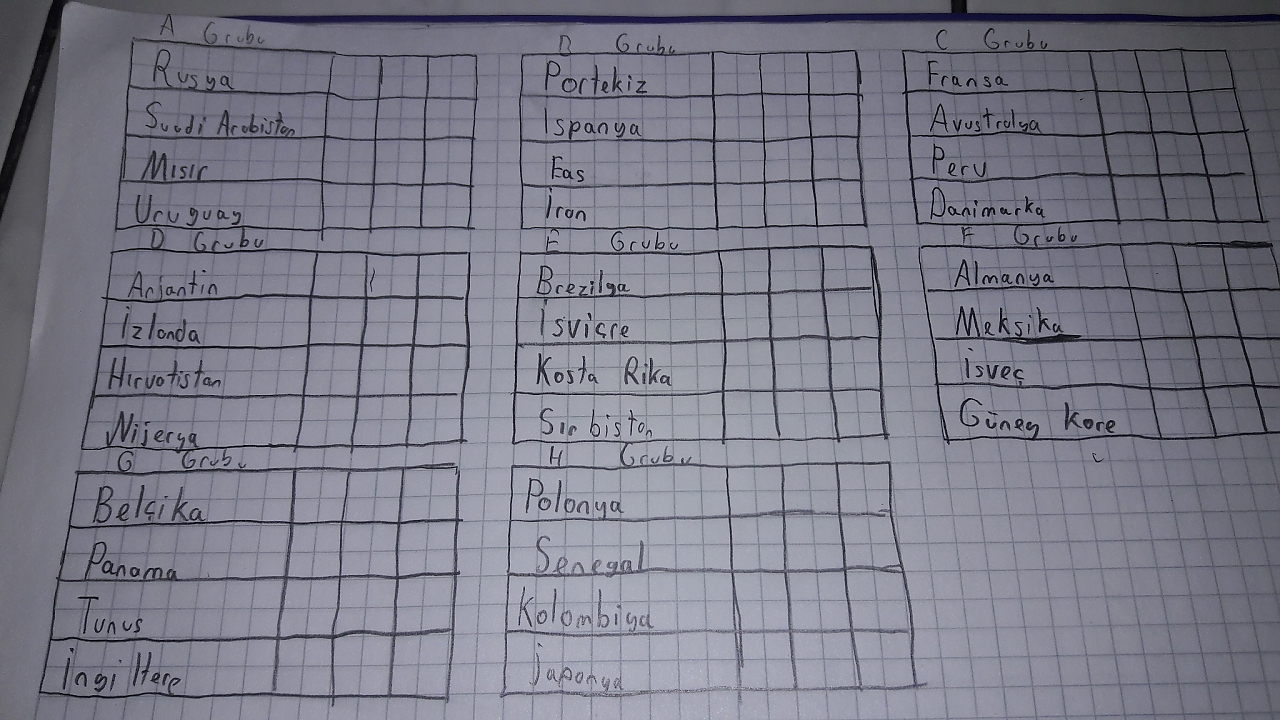 A Grubu
Rusya
Suudi Arabistan
Mısır
Uruguay
B Grubu
Portekiz
Ispanya
Fas
İran
C Grubu
Fransa
Avustralya
Peru
Danimarka
D Grubu
Arjantin
İzlanda
Hırvatistan
Nijerya
E Grubu
Brezilya
İsviçre
Kosta Rika
Sırbistan
F Grubu
Almanya
Meksika
isveç
Güney Kore
G Grubu
Belçika
Panama
Tunus
İngiltere
H Grubu
Polonya
Senegal
Kolombiya
japonya